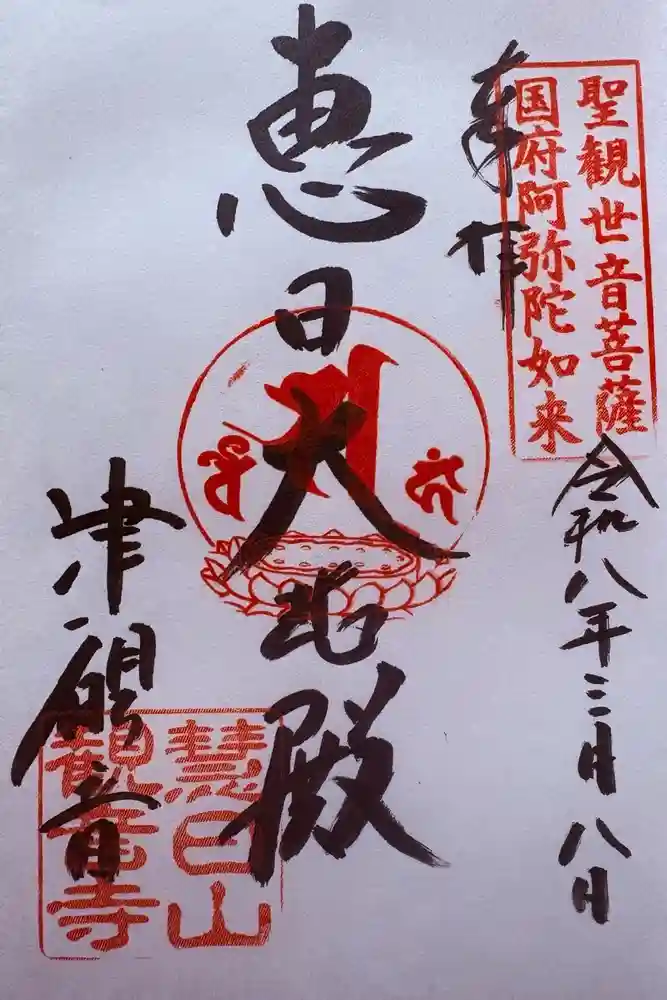 聖観世音菩薩
国府阿弥陀如来
奉拝
令和八年三月八日
恵日大悲殿
津観音
慧日山
観音寺